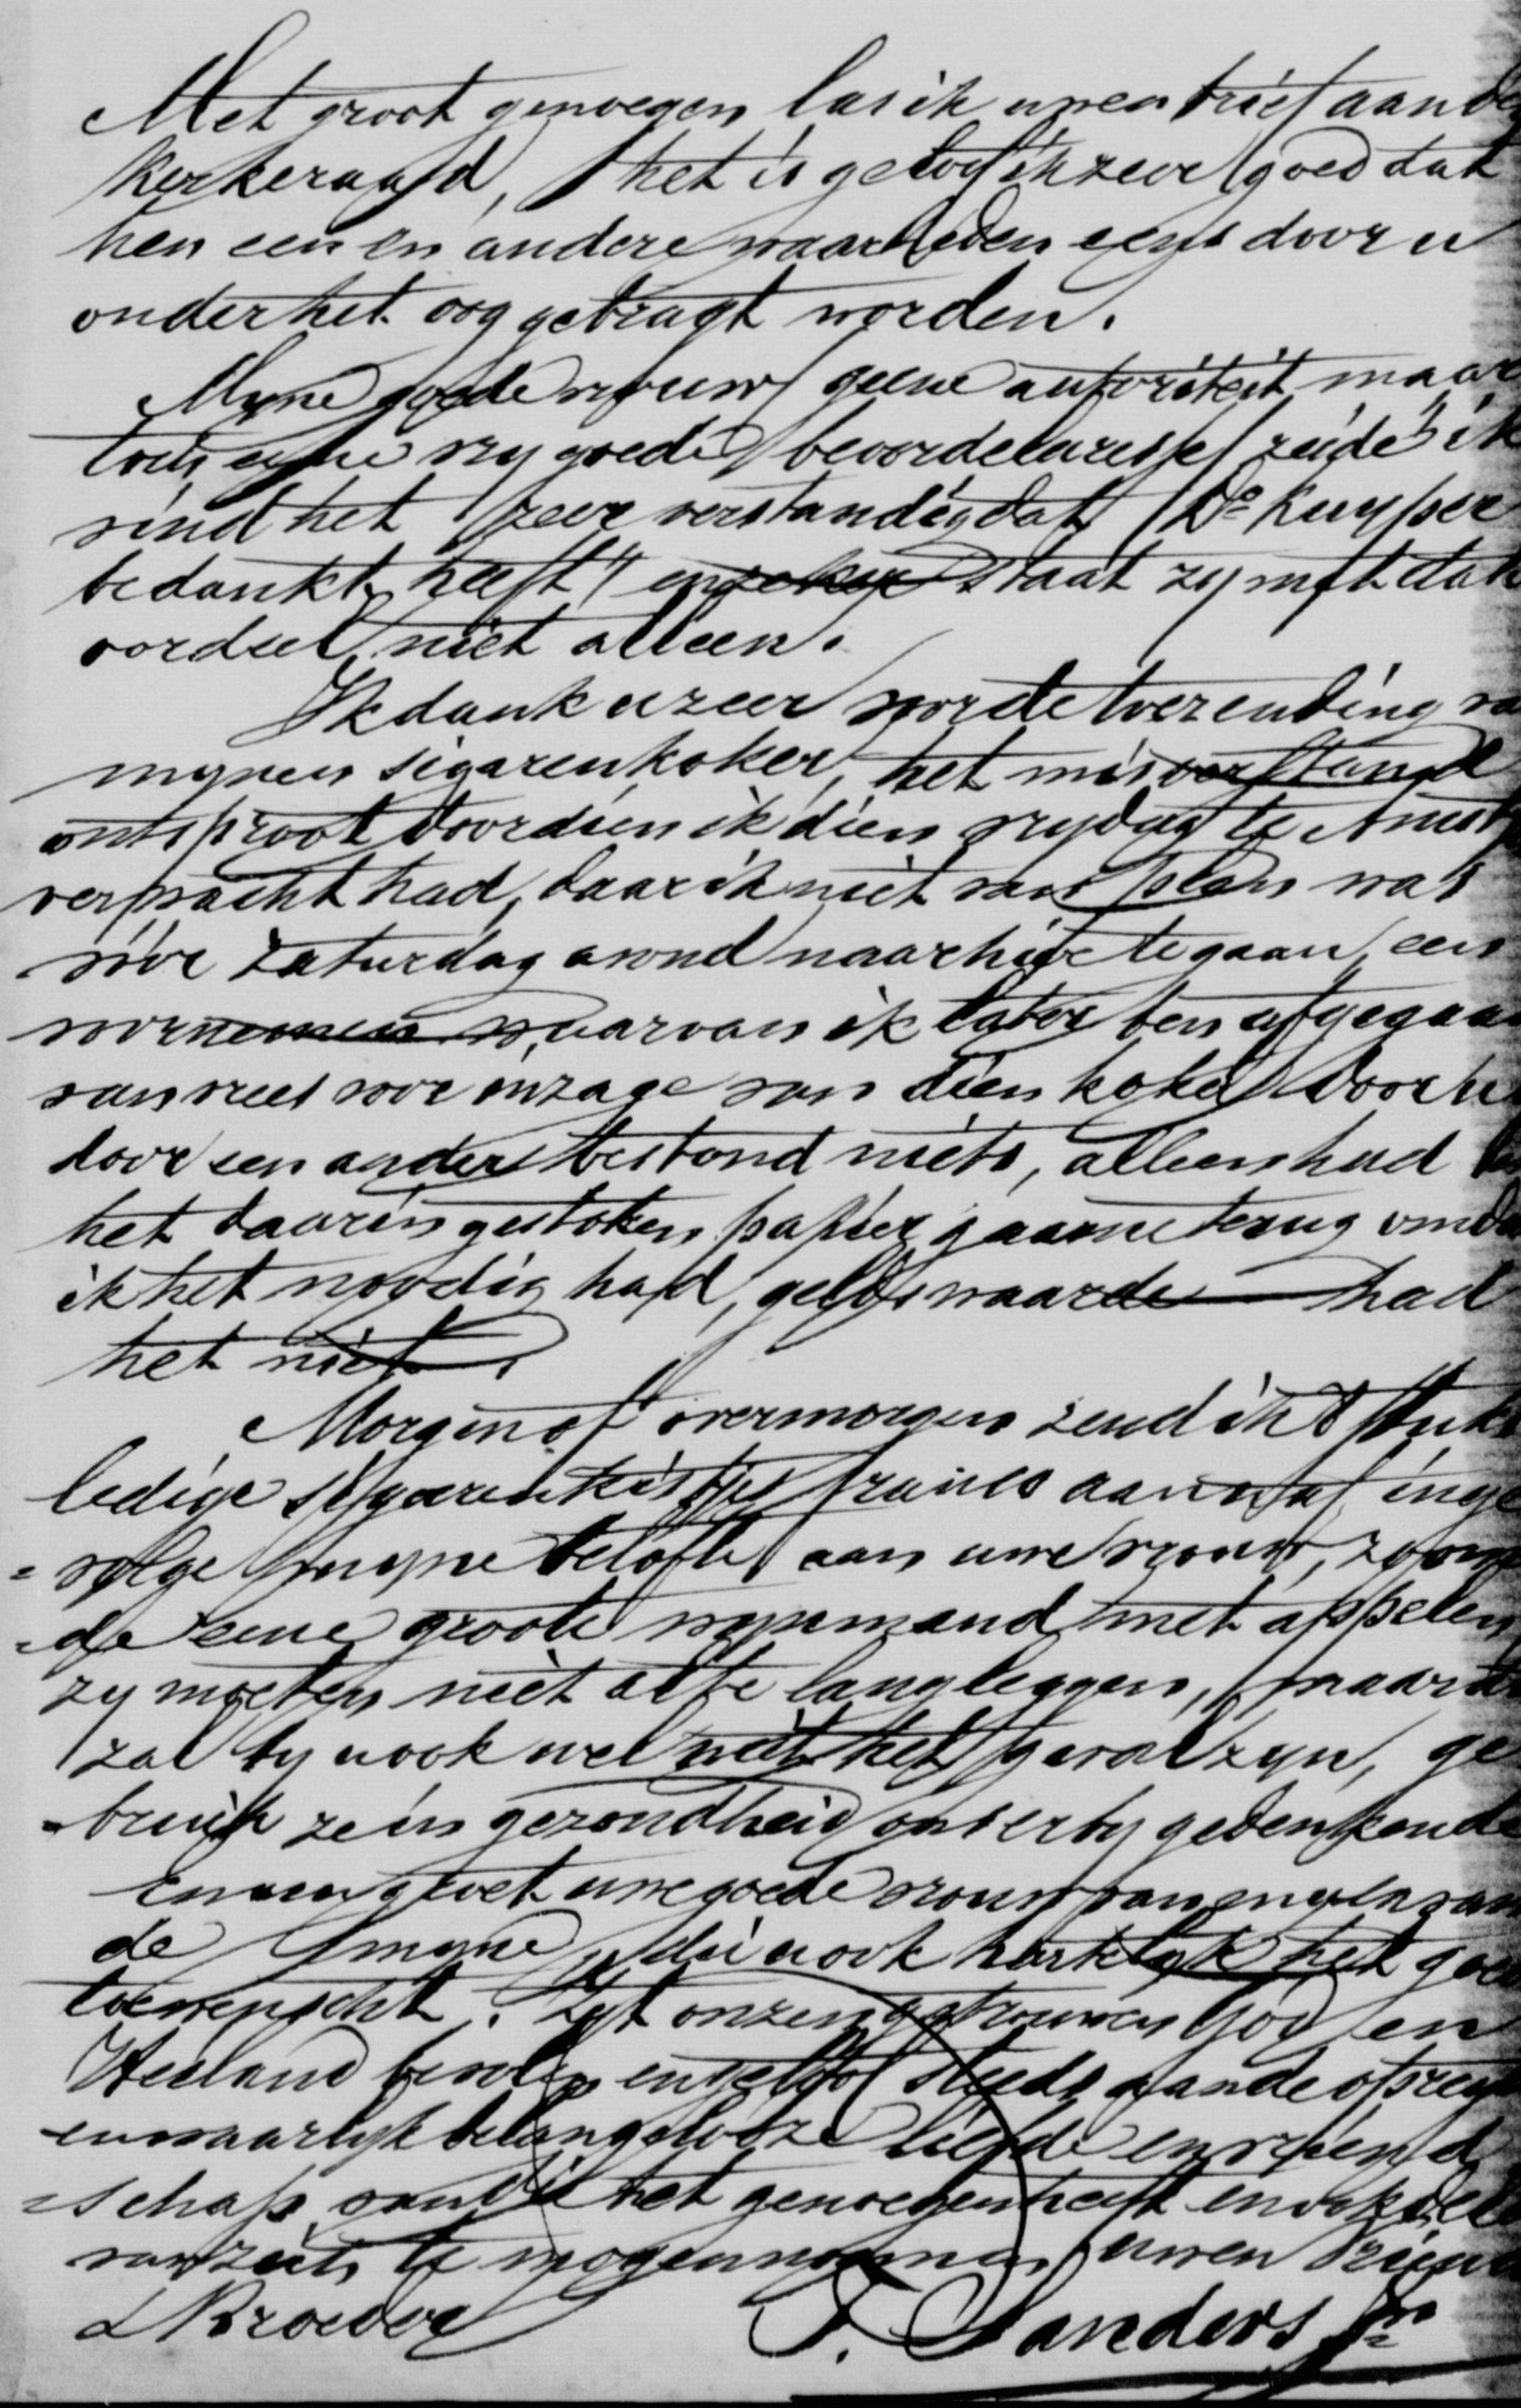 Met groot genoegen las ik uwen brief aan de
kerkeraad, het is geloof ik zeer goed dat
hen een en andere waarheden eens door u
onder het oog gebragt worden.
Myne goede vrouw geene autoriteit maar
toch eene vry goede beoordelaresse zeide "ik
vind het zeer verstandig dat Ds Kuyper
bedankt heeft" en zeker staat zy met dat
oordeel niet alleen.
Ik dank u zeer voor de toezending va
mynen sigarenkoker, het misverstand
ontsproot doordien ik dien vrydag te Amst
verwacht had, daar ik niet van plan was
vóór Zaturdag avond naar hier te gaan, een
voornemen waarvan ik later ben afgegaa
van vrees voor inzage van dien koker door u
door een ander bestond niets, alleen had
het daarin gestoken papier gaarne terug omda
ik het noodig had, geldswaarde had
het niet.
Morgen of overmorgen zend ik stuks
ledige sigarenkistjes franco aan inge
=volge myne belofte aan uwe vrouw,
=de eene groote wynmand met appelen
zy moeten niet al te lang leggen, maar da
zal by u ook wel niet het geval zyn, ge
=bruik ze in gezondheid onzer by gedenkende
En nu groet uwe goede vrouw van my en van
de myne, die u ook hartelyk het goe
toewenscht. Zyt onzen getrouwen God en
Heiland bevolen en steeds aan de opreg
en waarlyk belangelooze liefde en vriend
=schap van die het genoegen heeft en ook
van zich te mogen noemen uwen vriend
& Broeder T. Sanders Jr